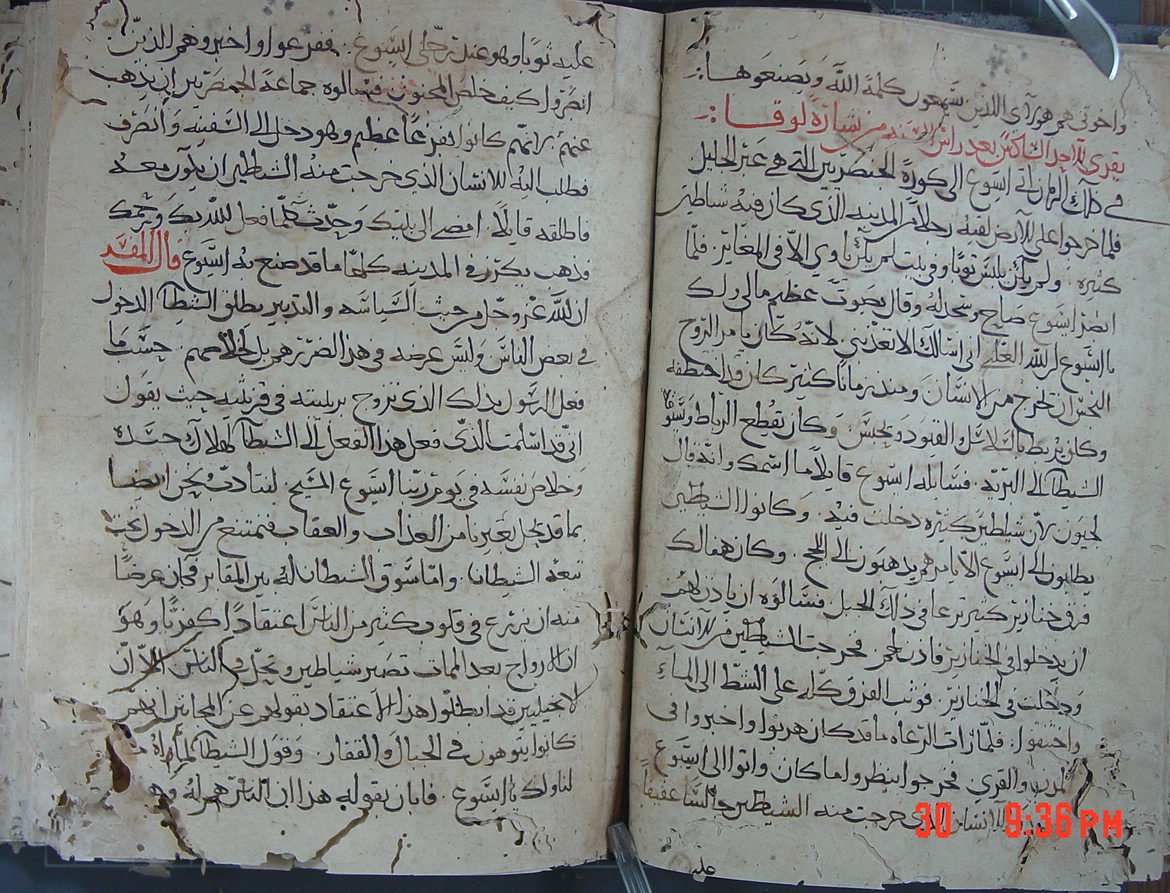 واخوتي هم هوراي اللذين يسمعون كلمة الله ويصنعوها
يقرى الاحد السادس بعد راس السنه من بشارة لوقا
في ذلك الزمان اتى ايسوع الى كورة الجتصريين التي هي عبر الجليل
فلما خرجوا على الارض لقيه رجلا من المدينه الذي كان فيه شياطين
كثيره ولم يكن يلبس ثوبا وفي بيت لم يكن ياوي الا في المقابر فلما
ابصر ايسوع صاح وسجد له وقال بصوت عظيم ما لي ولك
يا ايسوع ابن الله العلي اني اسالك لا تعذبني لانه كان يامر الروح
النجس ان تخرج من الانسان ومنذ زمانا كثير كان قد اختطفه
وكان يربط بالسلاسل والقيود ويحبس وكان يقطع الرباط
الشيطان الى البريه فساله ايسوع قايلا ما اسمك وانه قال
لجيون لان شياطين كثيره دخلت فيه وكانوا الشياطين
يطلبون الى ايسوع الا يامرهم يذهبون الى اللجج وكان هنالك
فرق خنازير كثير ترعا في ذلك الجبل فسالوه ان ياذن لهم
ان يدخلوا في الخنازير فاذن لهم فخرجت الشياطين من الانسان
ودخلت في الخنازير فوثب الفرق كله على الشط الى الماء
واختنقوا فلما رات الرعاه ما قد كان هربوا واخبروا في
المدن والقرى فخرجوا ينظروا ما كان واتوا الى ايسوع
الانسان الذي خرجت منه الشياطين جالسا عفيفا
عليه
عليه ثوبا وهو عند رجلي ايسوع ففزعوا واخبروهم الذين
ابصروا كيف خلص المجنون فسالوه جماعة الجتصريين ان يذهب
عنهم لانهم كانوا بفزعا عظيم وهو دخل الى السفينه وانصرف
فطلب اليه الانسان الذي خرجت منه الشياطين ان يكون معه
فاطلقه قايلا امضي الى بيتك وحدث كلما فعل الله بك ورحمك
فذهب يكرز في المدينه كلها ما قد صنع به ايسوع قال المفسر
ان الله عز وجل من حيث السياسه والتدبير يطلق الشيطان الدخول
في بعض الناس وليس غرضه في هذا الضرر لهم بل لخلاصهم حسب ما
فعل الرسول بذلك الذي تزوج بربيبته في قرنثيه حيث يقول
اني قد اسلمت الذي فعل هذا الفعل الى الشيطان لهلاك جسده
وخلاص نفسه في يوم ربنا ايسوع المسيح لنتادب نحن ايضا
بما قد يحل بغيرنا من العذاب والعقاب فنمتنع من الدخول تحت
تبعة الشيطان واما سوق الشيطان له بين المقابر فكان غرضا
منه ان يزرع في قلوب كثير من الناس اعتقادا كفريا وهو
ان الارواح بعد الممات تصير شياطين وتحل في الناس الا ان
الانجيليين قد ابطلوا هذا الاعتقاد بقولهم عن المجانين انهم
كانوا يتوهون في الجبال والقفار وقول الشيطان
لنا ولك يا ايسوع فابان بقوله هذا ان ليس هم له
30 9:36 PM